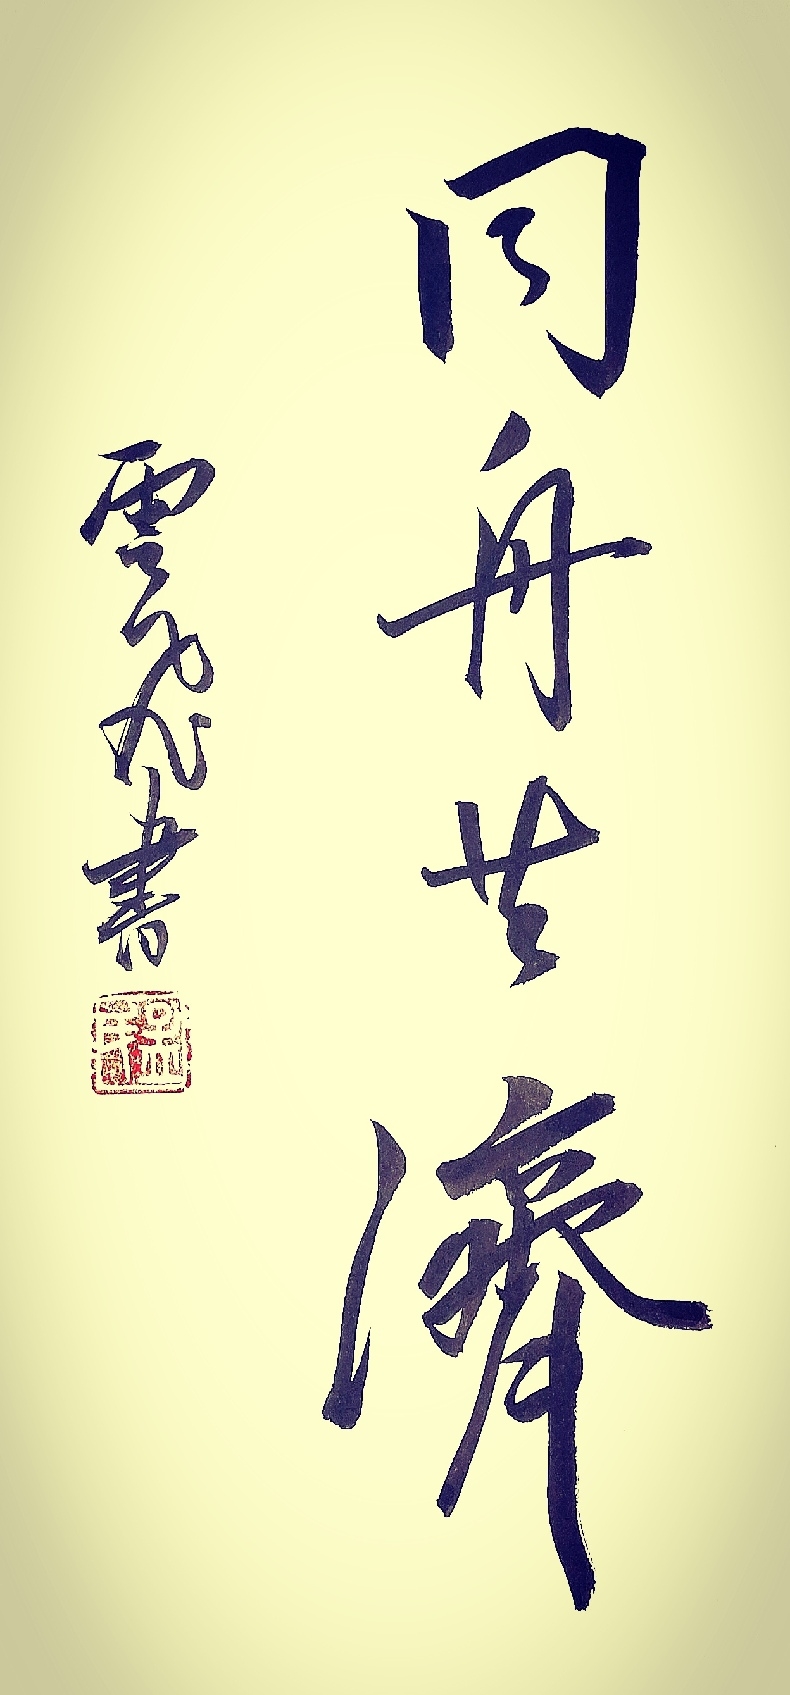 同舟共濟
雲飛書